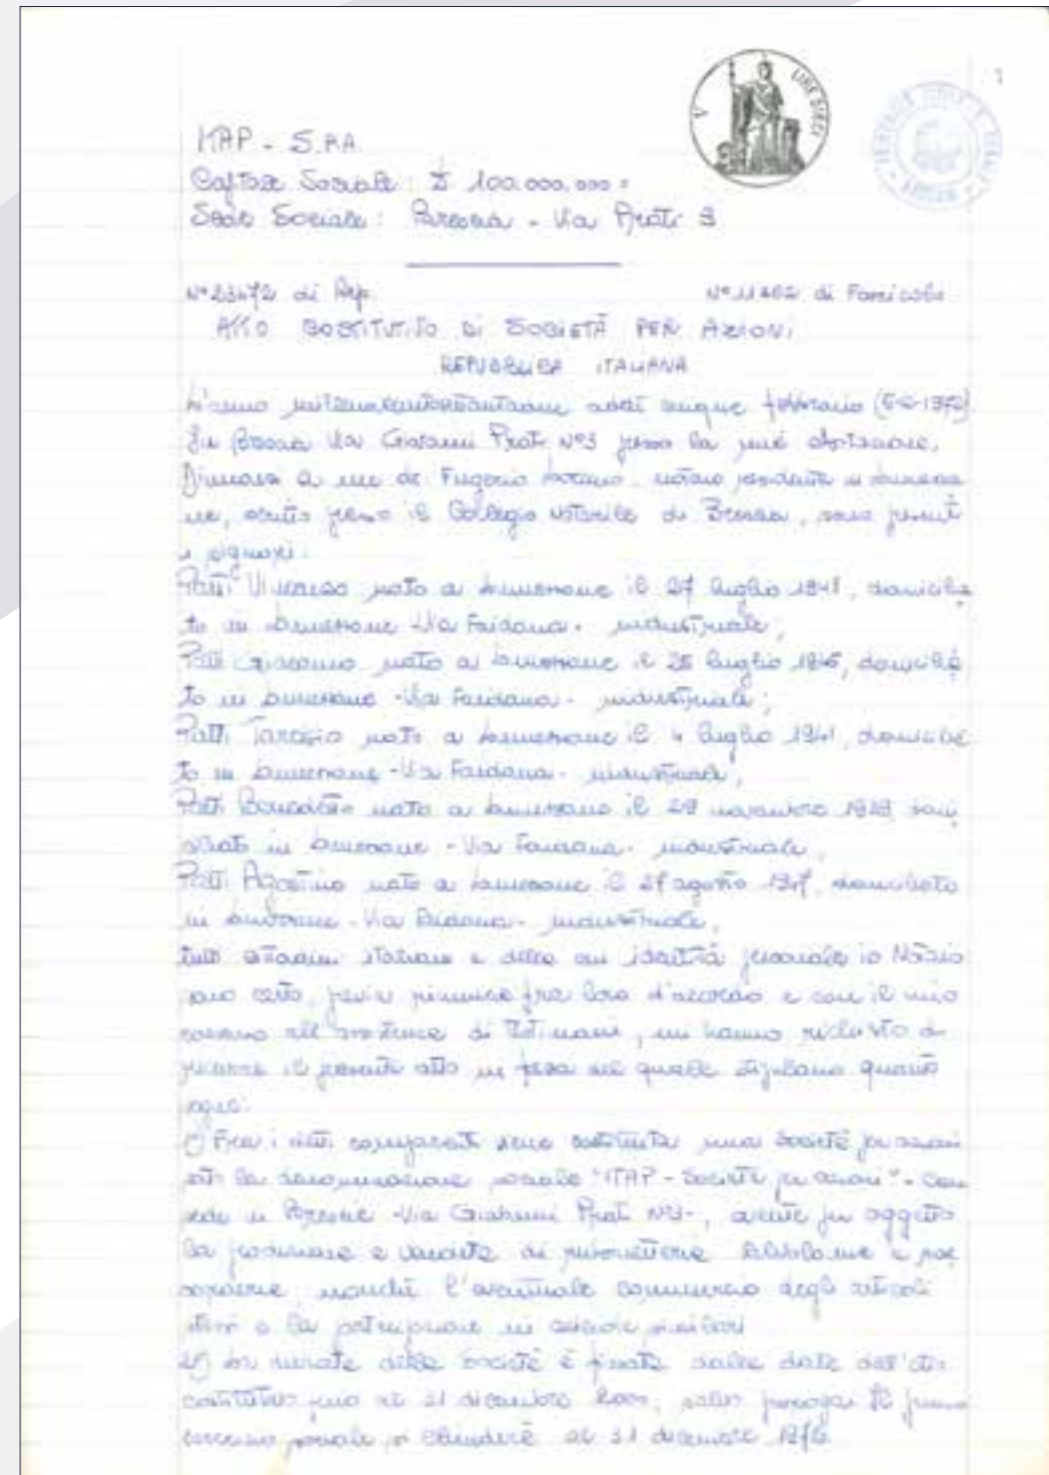 LIRE DIECI
V
ITAP - S.P.A.
Capitale Sociale: £ 100.000.000=
Sede Sociale: Brescia - Via Prati 3
N° 23472 di Rep. N° 11402 di Fascicolo
ATTO COSTITUTIVO DI SOCIETÀ PER AZIONI
REPUBBLICA ITALIANA
L'anno addì cinque febbraio (5-2-1972)
In Brescia Via Giovanni Prati N°3 presso la
Dinnanzi a me dr. notaio residente in Lumezza
ne, iscritto presso il Collegio notarile di Brescia, sono presenti
i signori:
Patti Vincenzo nato a Lumezzane il 27 luglio domicilia
to in Lumezzane - Via Faidana - industriale;
Patti Giacomo nato a Lumezzane il 25 luglio domicilia
to in Lumezzane - Via Faidana - industriale;
Patti Tarcisio nato a Lumezzane il 4 luglio 1941, domicilia
to in Lumezzane - Via Faidana - industriale;
Patti Benedetto nato a Lumezzane il novembre domi
ciliato in Lumezzane - Via Faidana - industriale,
Patti Agostino nato a Lumezzane il 27 agosto domiciliato
in Lumezzane - Via Faidana - industriale,
tutti cittadini italiani e della cui identità personale io Notaio
sono certo, previa rinuncia fra loro d'accordo e con il mio
consenso all'assistenza di testimoni, mi hanno richiesto di
ricevere il presente atto in forza del quale stipulano quanto
segue:
1°) Fra i detti comparenti viene costituita una società per azioni
sotto la denominazione sociale "ITAP - Società per azioni" - con
sede in Brescia - Via Giovanni Prati N°3-, avente per oggetto
la produzione e vendita di rubinetterie valvolame e
nonché l'eventuale commercio degli articoli
stessi e la partecipazione in aziende similari
2°) La durata della società è fissata dalla data dell'atto
costitutivo fino al 31 dicembre salvo proroga. Il primo
esercizio sociale si chiuderà al 31 dicembre